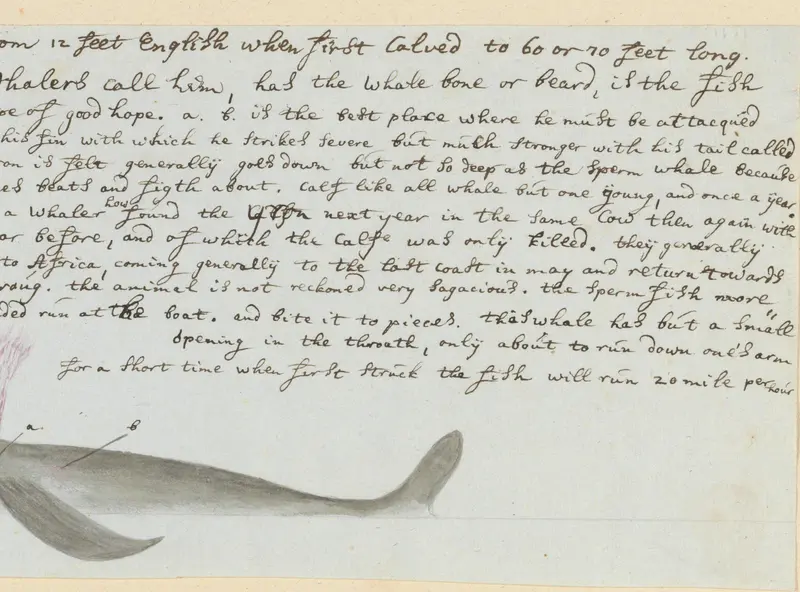 om 12 feet English when first Calved to 60 or 70 feet long.
whalers call him, has the whale bone or beard, is the fish
pe of good hope. a. b. is the best place where he must be attacqued
his fin with which he strikes severe but much stronger with his tail called
ron is felt generally goes down but not so deep as the sperm whale because
es beats and figth about. Calf like all whale but one young, and once a year
a whaler how found the next year in the same Cow then again with
ar before, and of which the Calfe was only killed. they generally
to Africa, coming generally to the last coast in may and return towards
roug. the animal is not reckoned very sagacious. the sperm fish more
ded run at the boat. and bite it to pieces. this whale has but a small
opening in the throath, only about to run down one's arm
for a short time when first struck the fish will run 20 mile per hour
a b